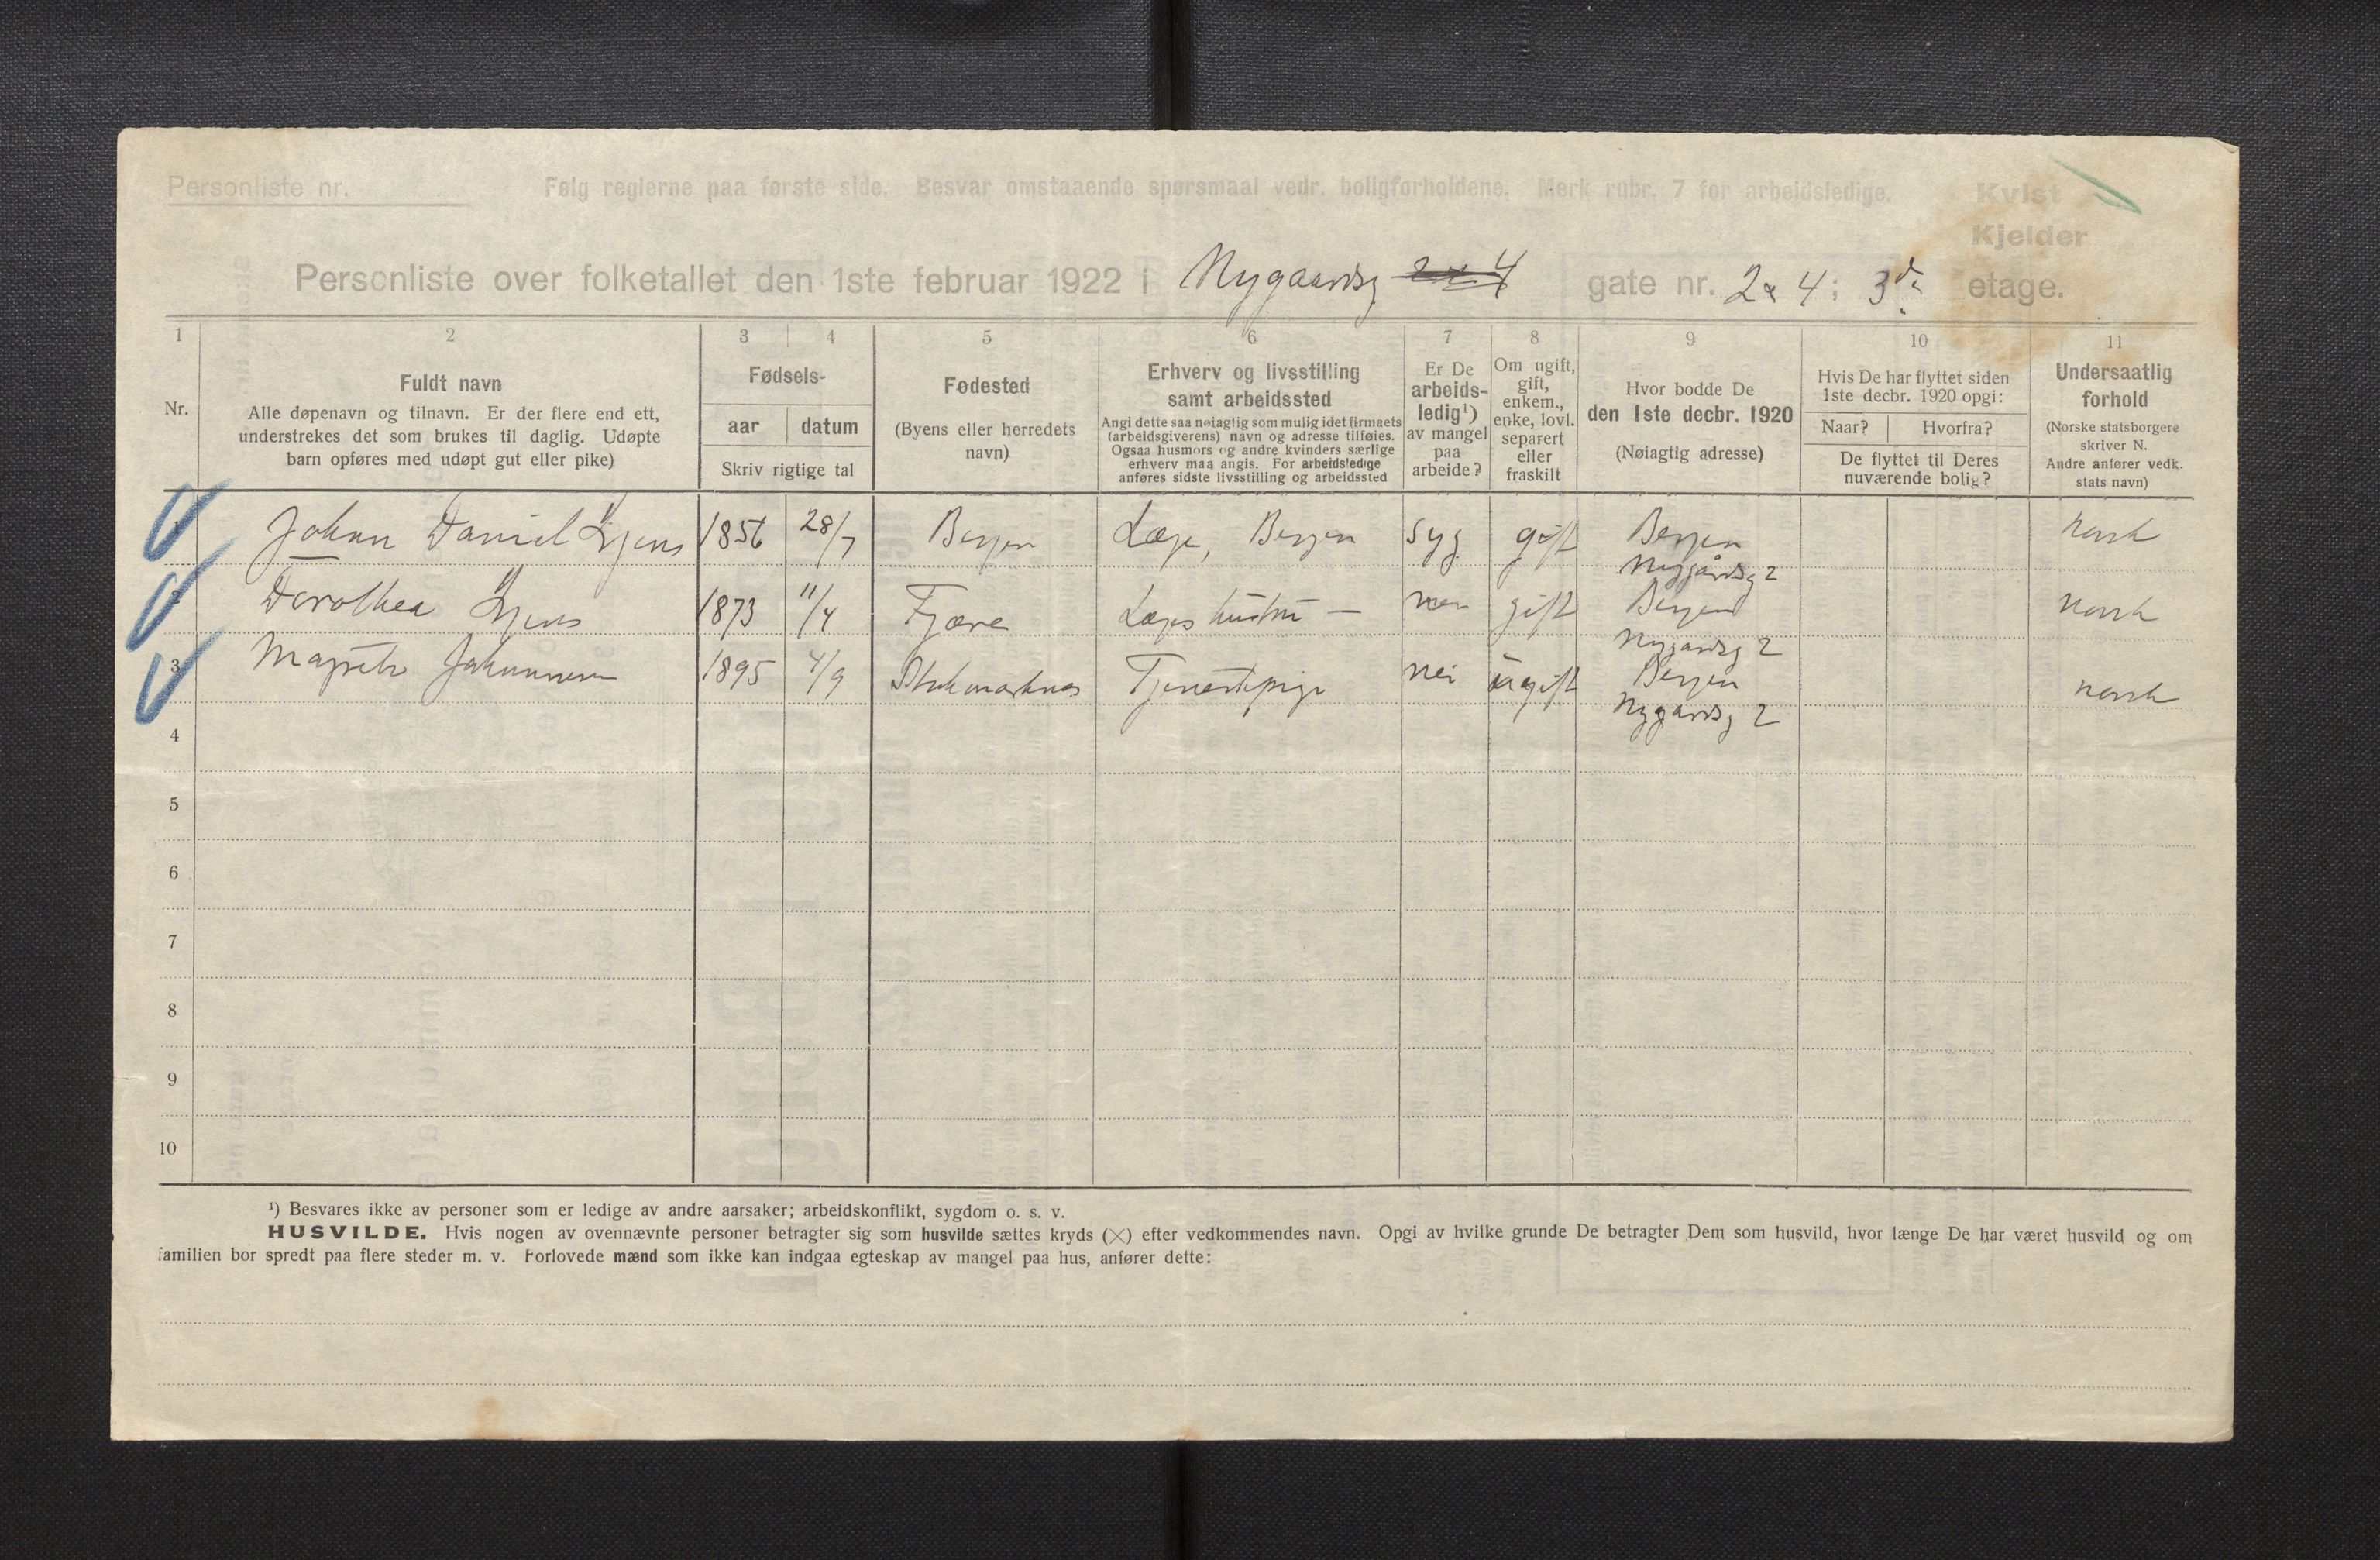 Personliste nr.
Følg reglerne paa første side. Besvar omstaaende spørsmaal vedr. boligforholdene. Merk rubr. 7 for arbeidsledige.
Kvist
Kjelder
Personliste over folketallet den 1ste februar 1922 i Nygaardsg gate nr. 2 & 4; 3de etage.
1 2 3 4 5 6 7 8 9 10 11
Nr.
Fuldt navn
Alle døpenavn og tilnavn. Er der flere end ett,
understrekes det som brukes til daglig. Udøpte
barn opføres med udøpt gut eller pike)
Fødsels-
aar datum
Skriv rigtige tal
Fødested
(Byens eller herredets
navn)
Erhverv og livsstilling
samt arbeidssted
Angi dette saa nøiagtig som mulig idet firmaets
(arbeidsgiverens) navn og adresse tilføies.
Ogsaa husmors og andre kvinders særlige
erhverv maa angis. For arbeidsledige
anføres sidste livsstilling og arbeidssted
Er De
arbeids-
ledig¹)
av mangel
paa
arbeide?
Om ugift,
gift,
enkem.,
enke, lovl.
separert
eller
fraskilt
Hvor bodde De
den 1ste decbr. 1920
(Nøiagtig adresse)
Hvis De har flyttet siden
1ste decbr. 1920 opgi:
Naar? Hvorfra?
De flyttet til Deres
nuværende bolig?
Undersaatlig
forhold
(Norske statsborgere
skriver N.
Andre anfører vedk.
stats navn)
1 Johan Daniel 1856 28/7 Bergen Læge, Bergen syg gift Bergen norsk
Nygårdsg 2
2 Dorothea 1873 11/4 Fjære Læges hustru — nei gift Bergen norsk
Nygardsg 2
3 Magrete Johannesen 1895 4/9 Stokmarknes Tjenestepige nei ugift Bergen norsk
Nygårdsg 2
4
5
6
7
8
9
10
¹) Besvares ikke av personer som er ledige av andre aarsaker; arbeidskonflikt, sygdom o. s. v.
HUSVILDE. Hvis nogen av ovennævnte personer betragter sig som husvilde sættes kryds (×) efter vedkommendes navn. Opgi av hvilke grunde De betragter Dem som husvild, hvor længe De har været husvild og om
familien bor spredt paa flere steder m. v. Forlovede mænd som ikke kan indgaa egteskap av mangel paa hus, anfører dette: